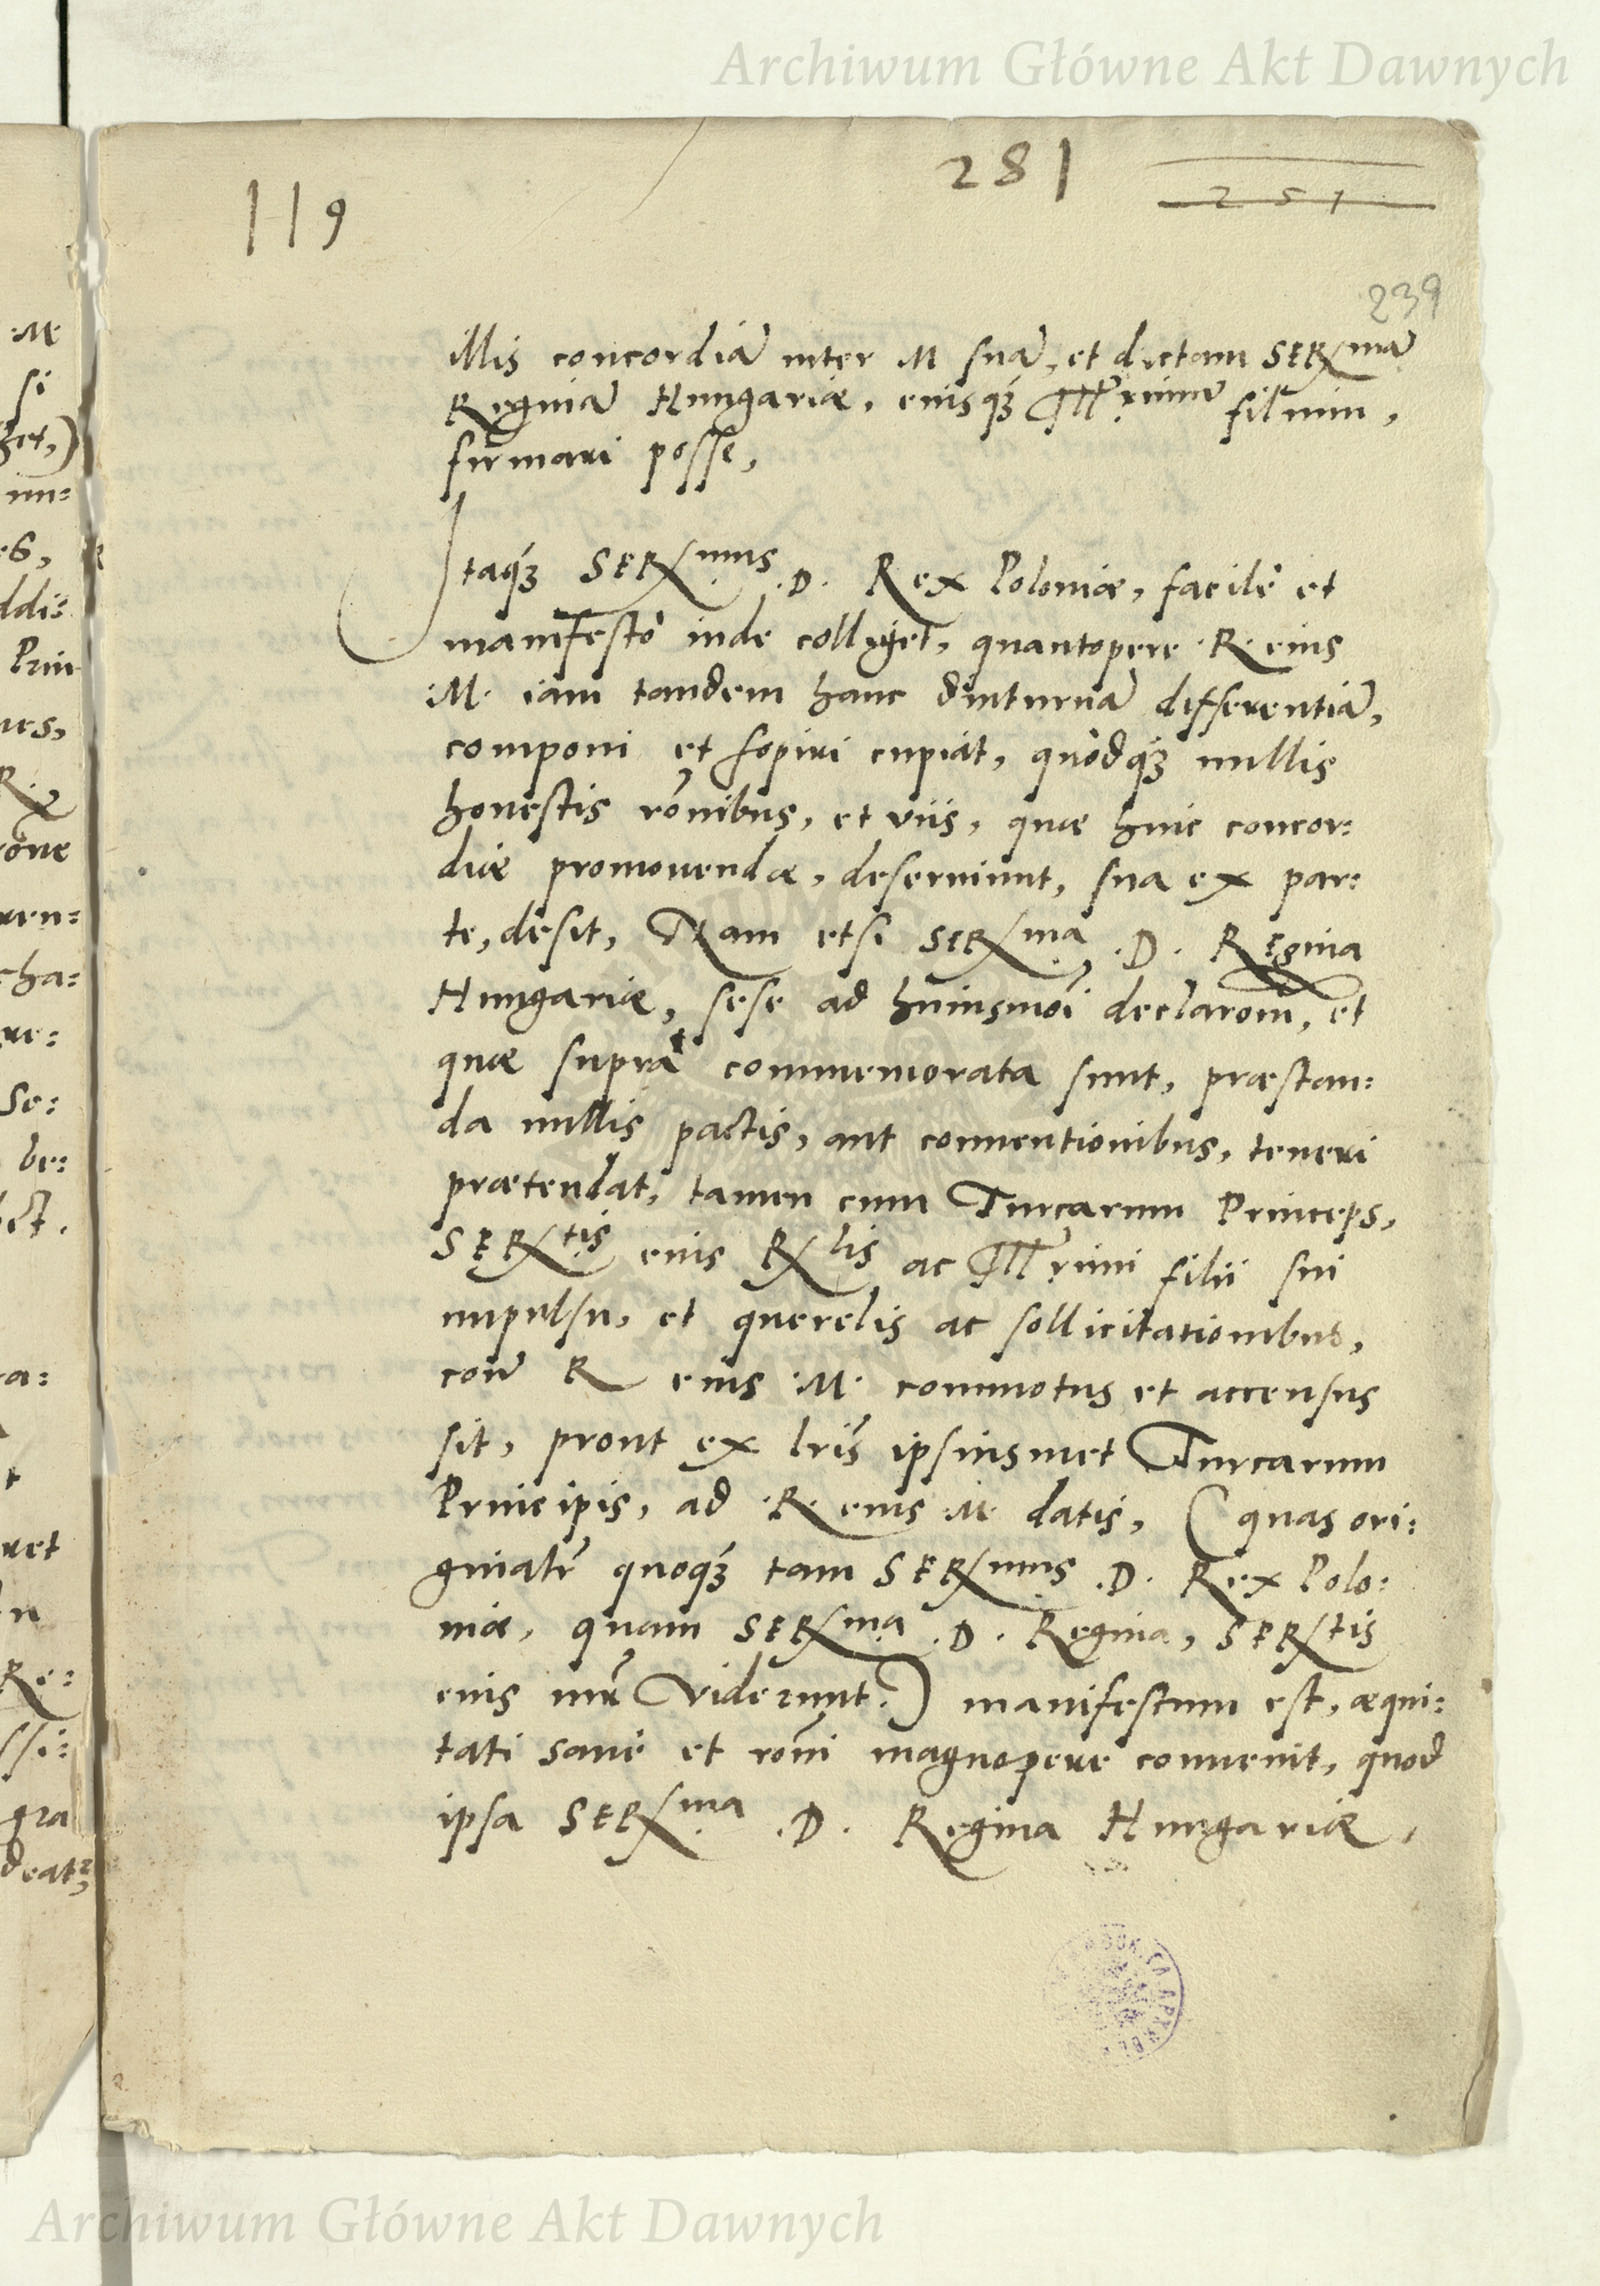 Archiwum Główne Akt Dawnych
281
251
119
239
illis concordiã inter M suã, et dictam SERmã
Reginã Hungariæ, eiusq́ꝫ Illr̃imũ filium,
firmari posse,
Itaq́ꝫ SERmus .D. Rex Poloniæ, facilè et
manifestò inde colliget, quantopere .R. eius
.M. iam tandem hanc diuturnã differentiã,
componi et sopiri cupiat, quòdq́ꝫ nullis
honestis rõnibus, et viis, quæ huic concor:
diæ promouendæ, deseruiunt, sua ex par:
te, desit, Nam etsi SERma .D. Regina
Hungariæ, sese ad huiusmõi declarõm, et
quæ suprà commemorata sunt, præstan:
da nullis pactis, aut conuentionibus, teneri
prætendat, tamen cum Turcarum Princeps,
SERtis eius Rlis ac Illr̃imi filii sui
impulsu, et querelis ac sollicitationibus,
con̄ R eius .M. commotus et accensus
sit, prout ex lr̃is ipsiusmet Turcarum
Principis, ad .R. eius .M. datis, (quas ori:
ginalr̃ quoq́ꝫ tam SERmus .D. Rex Polo:
niæ, quam SERma .D. Regina, SERtis
eius mr̃ viderunt.) manifestum est, æqui:
tati sanè et rõni magnopere conuenit, quod
ipsa SERma .D. Regina Hungariæ,
Archiwum Główne Akt Dawnych